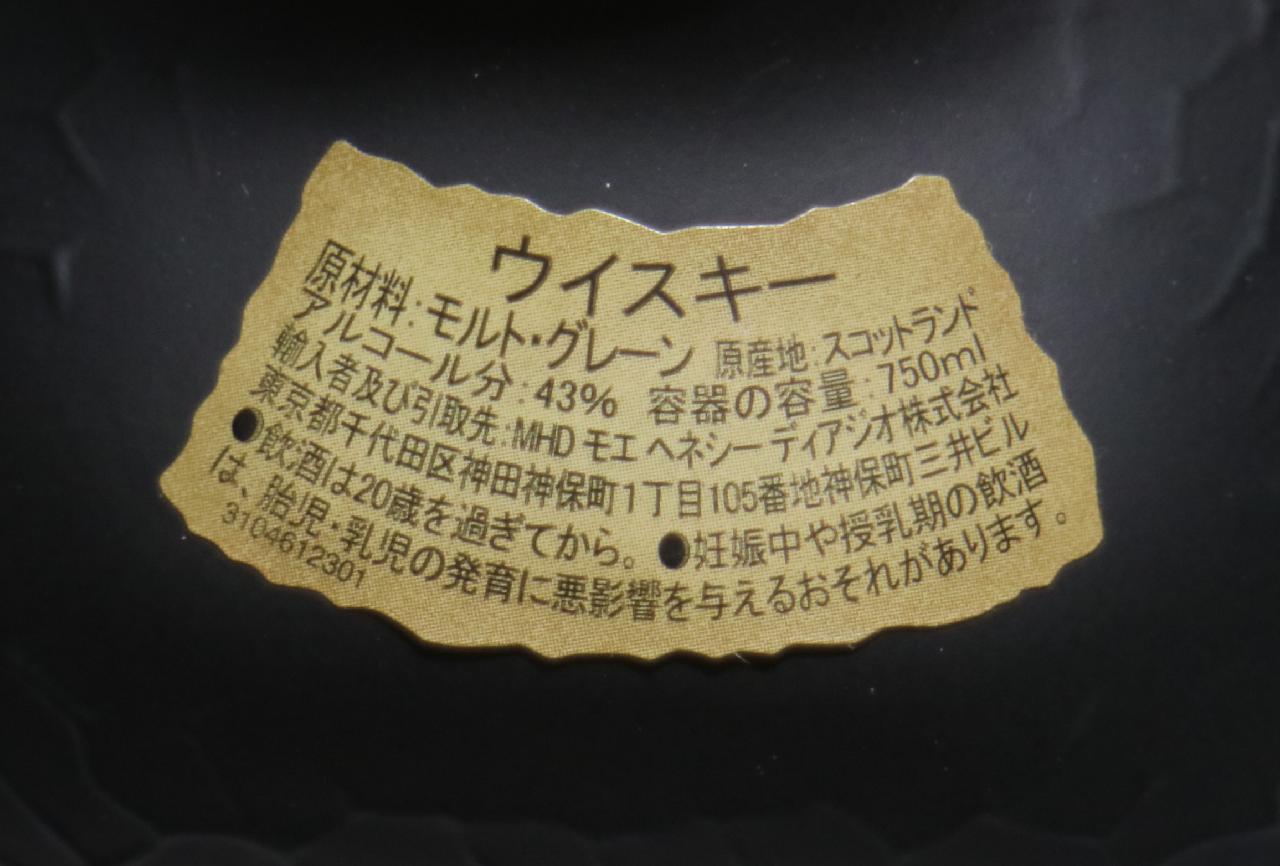 ウイスキー
原材料:モルト・グレーン 原産地:スコットランド
アルコール分:43% 容器の容量:750ml
輸入者及び引取先:MHD モエ ヘネシー ディアジオ株式会社
東京都千代田区神田神保町1丁目105番地神保町三井ビル
●飲酒は20歳を過ぎてから。●妊娠中や授乳期の飲酒
は、胎児・乳児の発育に悪影響を与えるおそれがあります。
3104612301